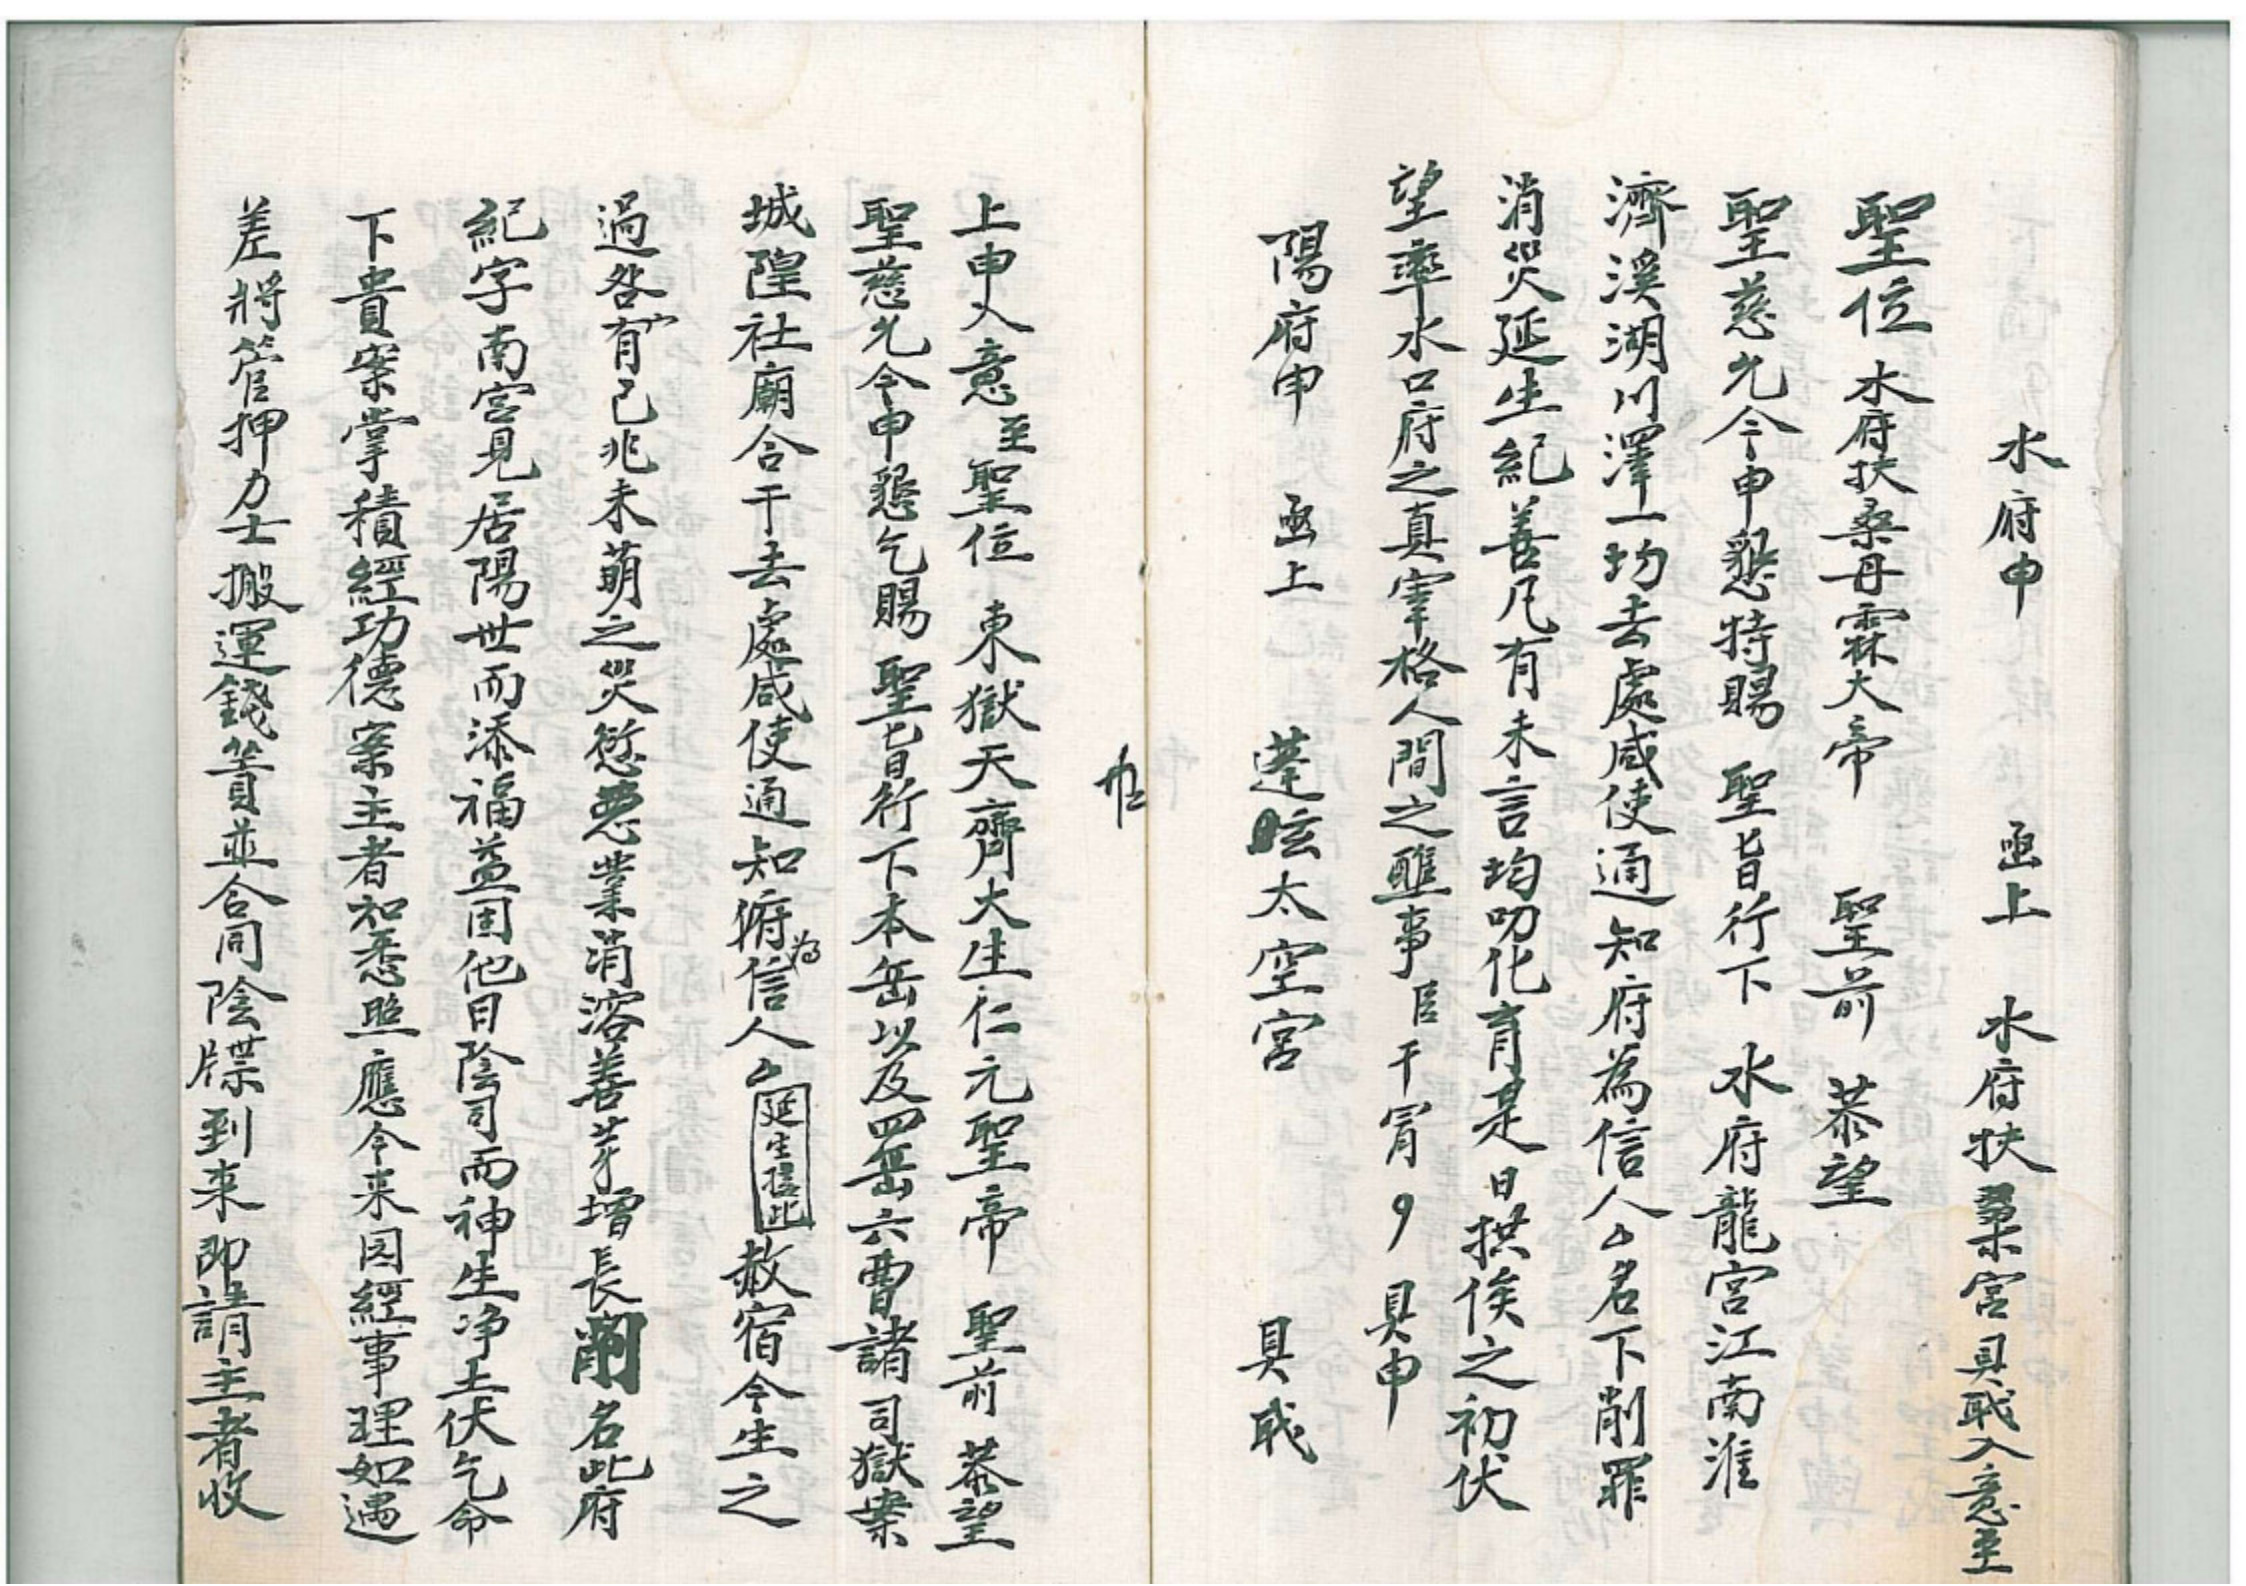 水府申 函上 水府扶桑宮具戝入意至
聖位 水府扶桑丹霖大帝 聖前 恭望
聖慈允今申懇特賜 聖旨行下 水府龍宮江南淮
濟溪湖川澤一切去處咸使通知府為信人厶名下削罪
消災延生紀善凡有未言均叨化育是日拱俟之初伏
望率水口府之真宰格人間之醮事臣干冐9具申
陽府申 函上 蓬眩太空宮 具戝
上申入意至聖位 東獄天齊大生仁元聖帝 聖前 恭望
聖慈允令申懇乞賜 聖旨行下本岳以及四岳六曹諸司獄案
城隍社廟合干去處咸使通知俯為信人厶延生接此赦宿今生之
過咎宥有已兆未萌之災愆惡業消溶善芽增長削名此府
紀字南宮見居陽世而添福益固他日陰司而神生净土伏乞命
下貴案掌積經功德案主者知悉照應令来因經事理如遇
差將管押力士搬運錢簣並合同陰牒到来即請主者收